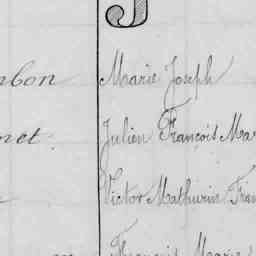 J
Marie Joseph
Julien François Mar
Victor Mathurin Fran
François Marie